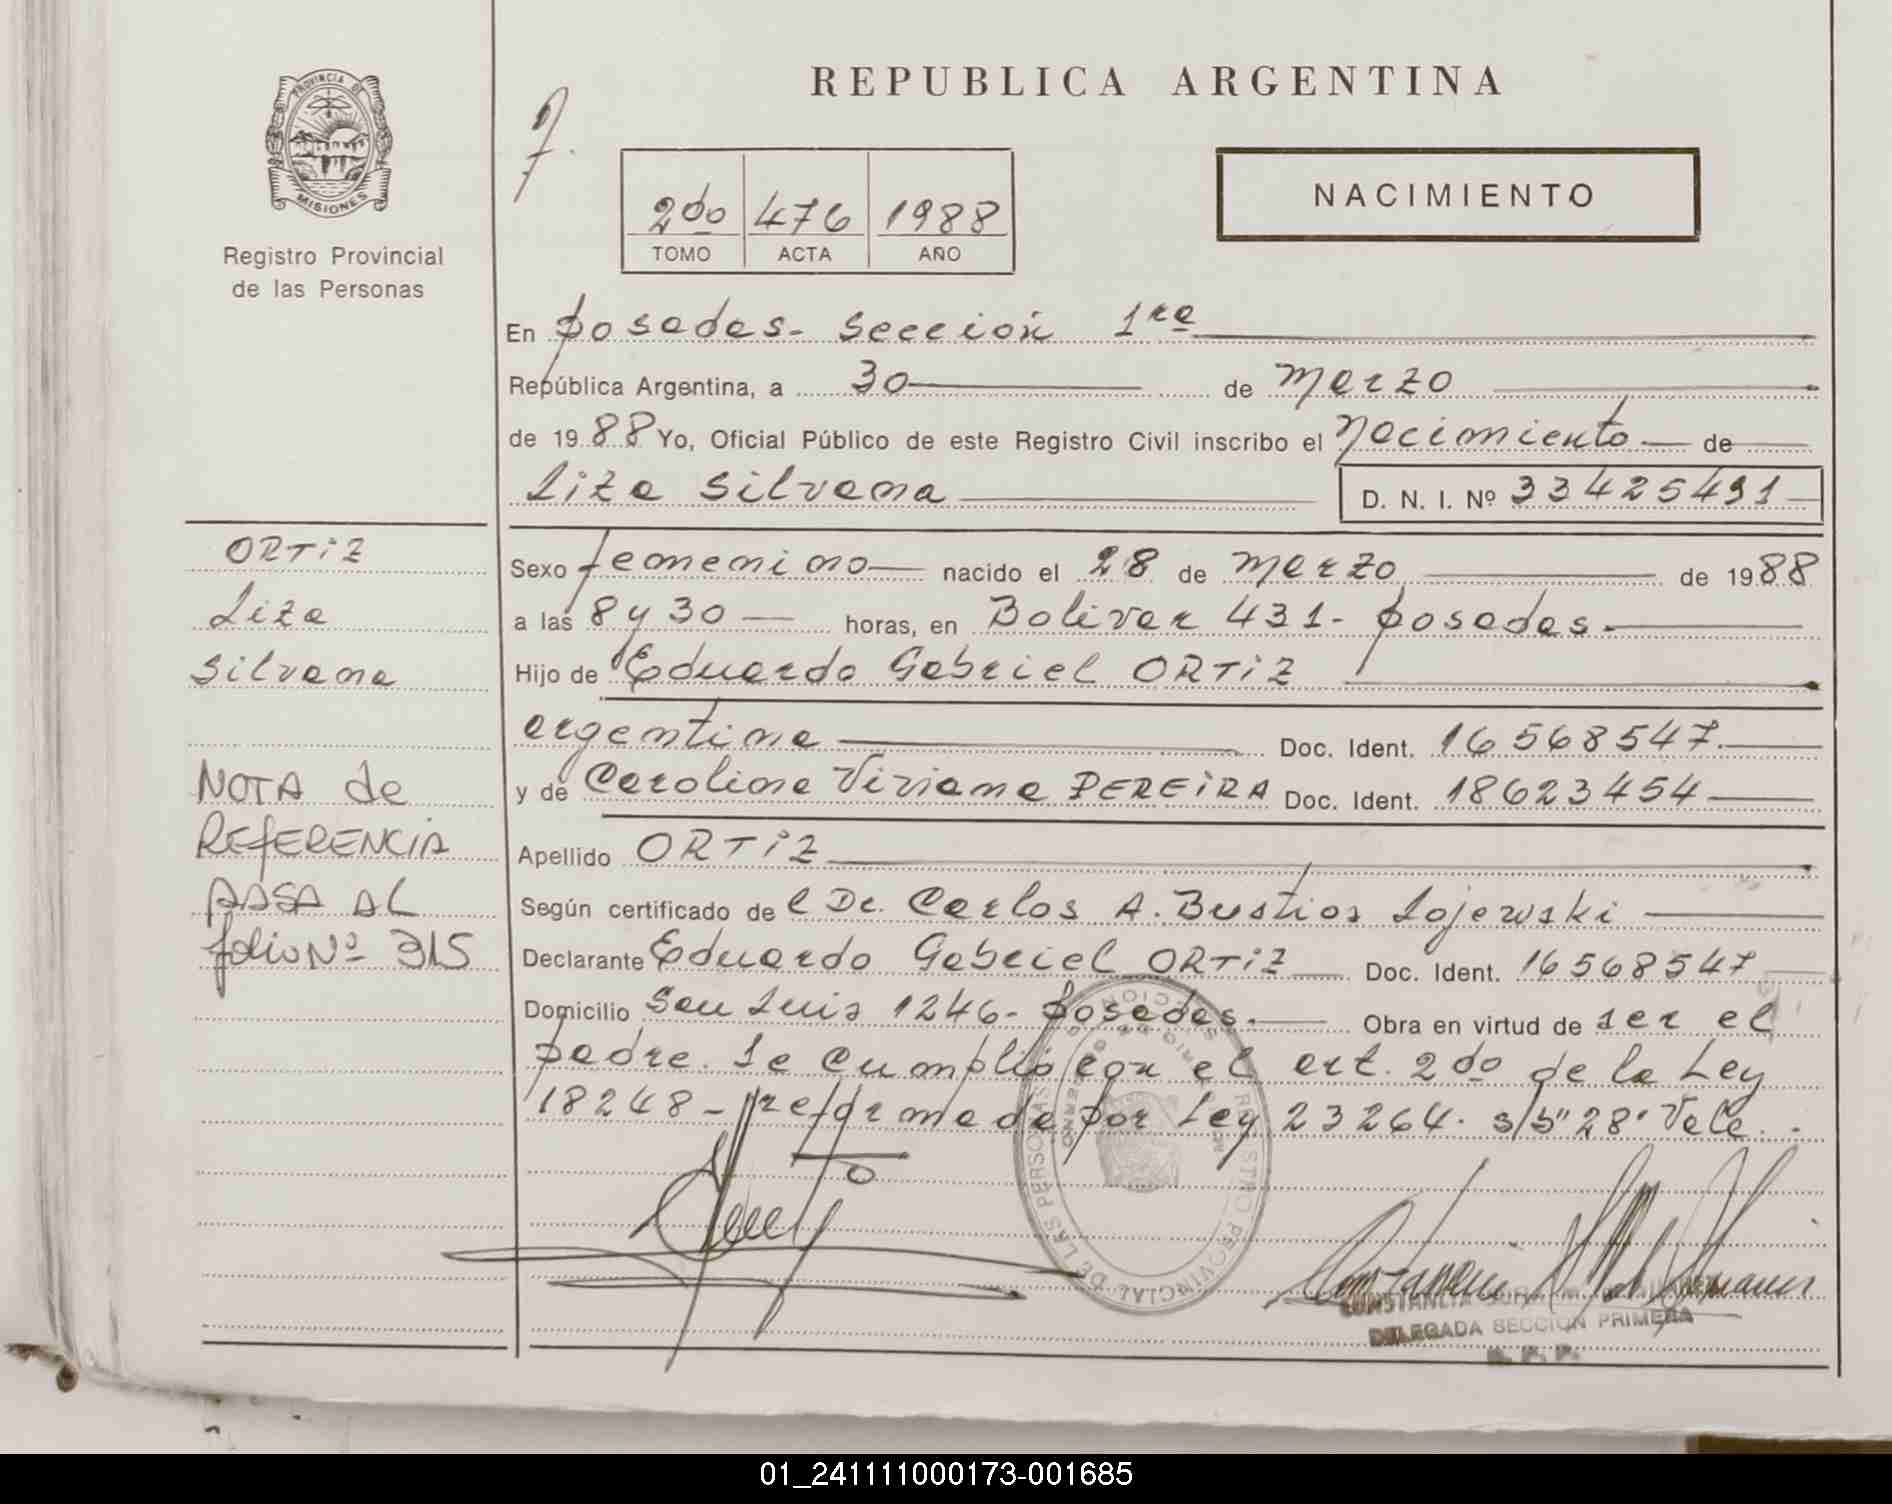 REPUBLICA ARGENTINA
PROVINCIA DE
MISIONES
Registro Provincial
de las Personas
2do 476 1988
TOMO ACTA AÑO
NACIMIENTO
En posadas- Sección 1ra
República Argentina, a 30 de Marzo
de 1988 Yo, Oficial Público de este Registro Civil inscribo el Nacimiento de
Liza Silvana D. N. I. Nº 33425491
Sexo femenino nacido el 28 de Marzo de 1988
a las 8 y 30 horas, en Bolivar 431- posadas-
Hijo de Eduardo Gabriel ORTiZ
argentina Doc. Ident. 16568547
y de Carolina Viviana PEREiRA Doc. Ident. 18623454
Apellido ORTiZ
Según certificado de l Dr. Carlos A. Bustios Lojewski
Declarante Eduardo Gabriel ORTiZ Doc. Ident. 16568547
Domicilio San Luis 1246- posadas. Obra en virtud de ser el
padre. Se cumplió con el art. 2do de la Ley
18248- reformada por Ley 23264. s/b "28" Vale.
ORTiZ
Liza
Silvana
NOTA de
REfERENCiA
PASA AL
folio Nº 315
REGISTRO PROVINCIAL DE LAS PERSONAS
DELEGADA SECCION PRIMERA
01_241111000173-001685